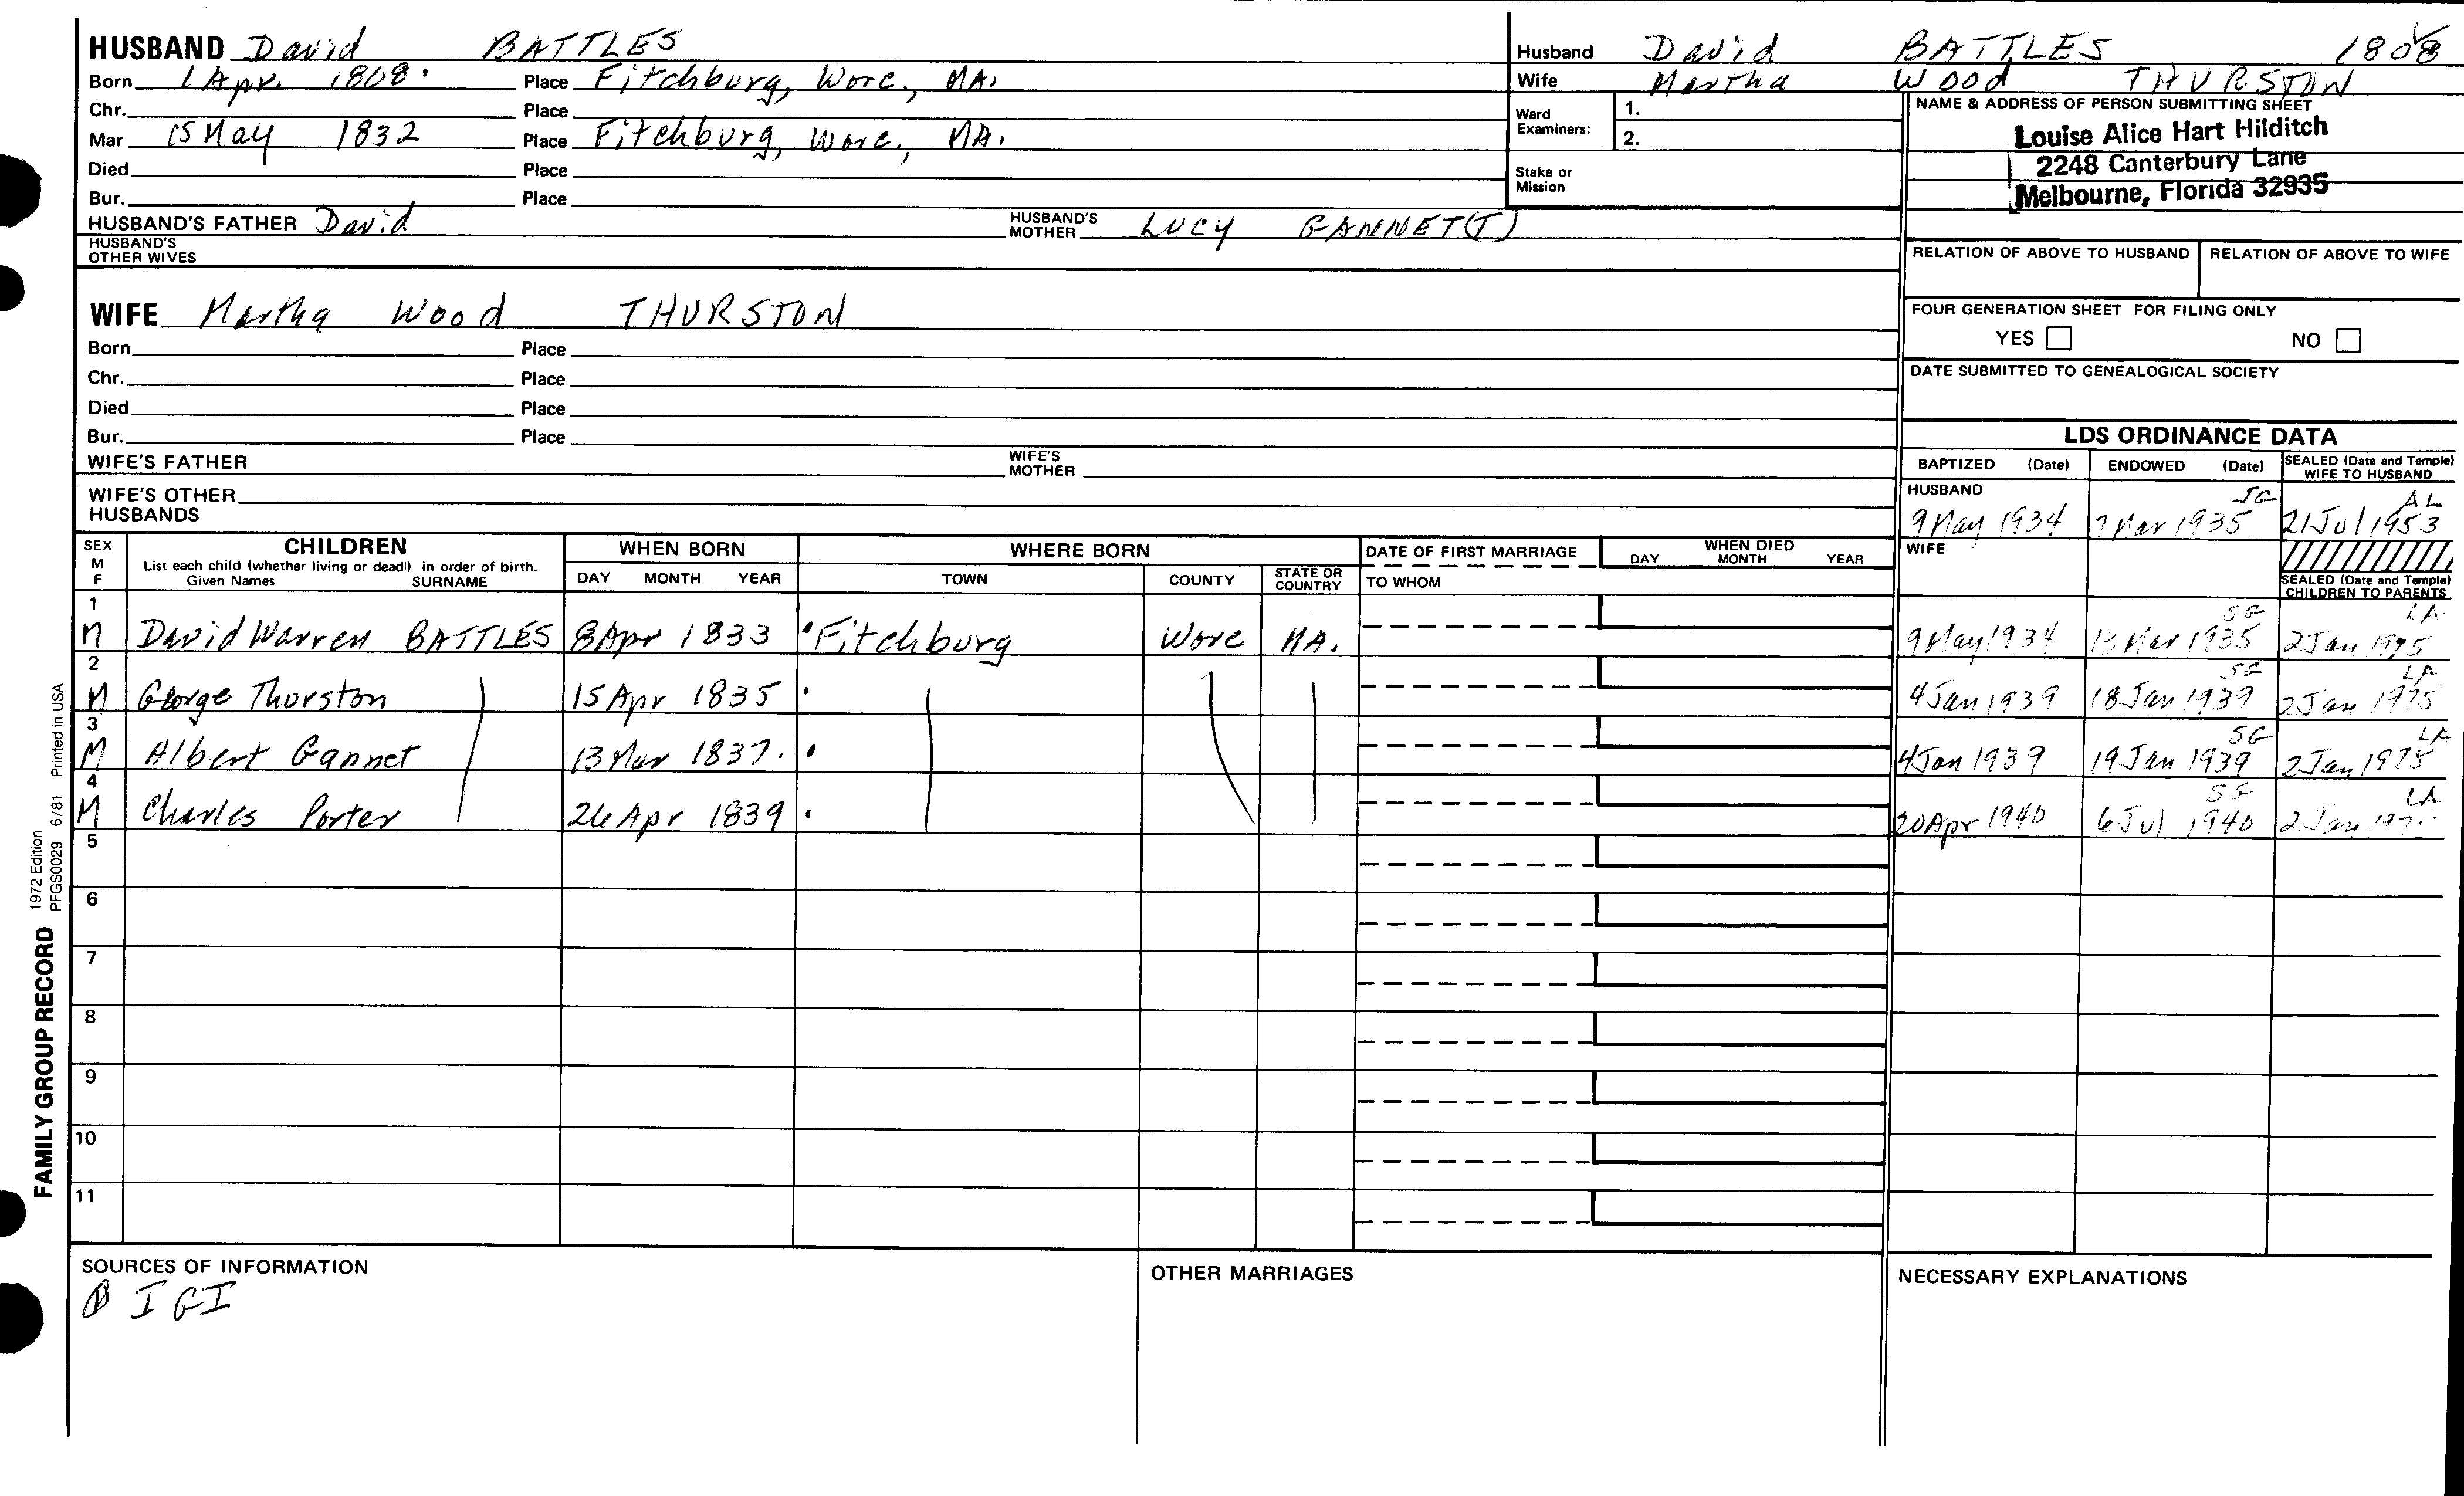 HUSBAND David BATTLES
Born 1 Apr. 1808. Place Fitchburg, Worc., MA.
Chr. Place
Mar 15 May 1832 Place Fitchburg, Worc., MA.
Died Place
Bur. Place
HUSBAND'S FATHER David HUSBAND'S MOTHER LUCY GANNET(T)
HUSBAND'S OTHER WIVES
Husband David BATTLES 1808
Wife Martha Wood THURSTON
Ward Examiners: 1.
2.
Stake or Mission
NAME & ADDRESS OF PERSON SUBMITTING SHEET
Louise Alice Hart Hilditch
2248 Canterbury Lane
Melbourne, Florida 32935
RELATION OF ABOVE TO HUSBAND RELATION OF ABOVE TO WIFE
FOUR GENERATION SHEET FOR FILING ONLY
YES NO
DATE SUBMITTED TO GENEALOGICAL SOCIETY
WIFE Martha Wood THURSTON
Born Place
Chr. Place
Died Place
Bur. Place
WIFE'S FATHER WIFE'S MOTHER
WIFE'S OTHER HUSBANDS
LDS ORDINANCE DATA
BAPTIZED (Date) ENDOWED (Date) SEALED (Date and Temple) WIFE TO HUSBAND
HUSBAND
SG AL
9 May 1934 7 Mar 1935 21 Jul 1953
WIFE
SEALED (Date and Temple) CHILDREN TO PARENTS
SEX M F CHILDREN WHEN BORN WHERE BORN DATE OF FIRST MARRIAGE WHEN DIED
List each child (whether living or dead) in order of birth.
Given Names SURNAME DAY MONTH YEAR TOWN COUNTY STATE OR COUNTRY TO WHOM DAY MONTH YEAR
1 SG LA
M David Warren BATTLES 8 Apr 1833 Fitchburg Worc MA. 9 May 1934 13 Mar 1935 2 Jan 1975
2 SG LA
M George Thurston 15 Apr 1835 4 Jan 1939 18 Jan 1939 2 Jan 1975
3 SG LA
M Albert Gannet 13 Mar 1837. 4 Jan 1939 19 Jan 1939 2 Jan 1975
4 SG LA
M Charles Porter 26 Apr 1839 20 Apr 1940 6 Jul 1940 2 Jan
5
6
7
8
9
10
11
SOURCES OF INFORMATION
IGI
OTHER MARRIAGES
NECESSARY EXPLANATIONS
FAMILY GROUP RECORD
1972 Edition
PFGS0029 6/81 Printed in USA